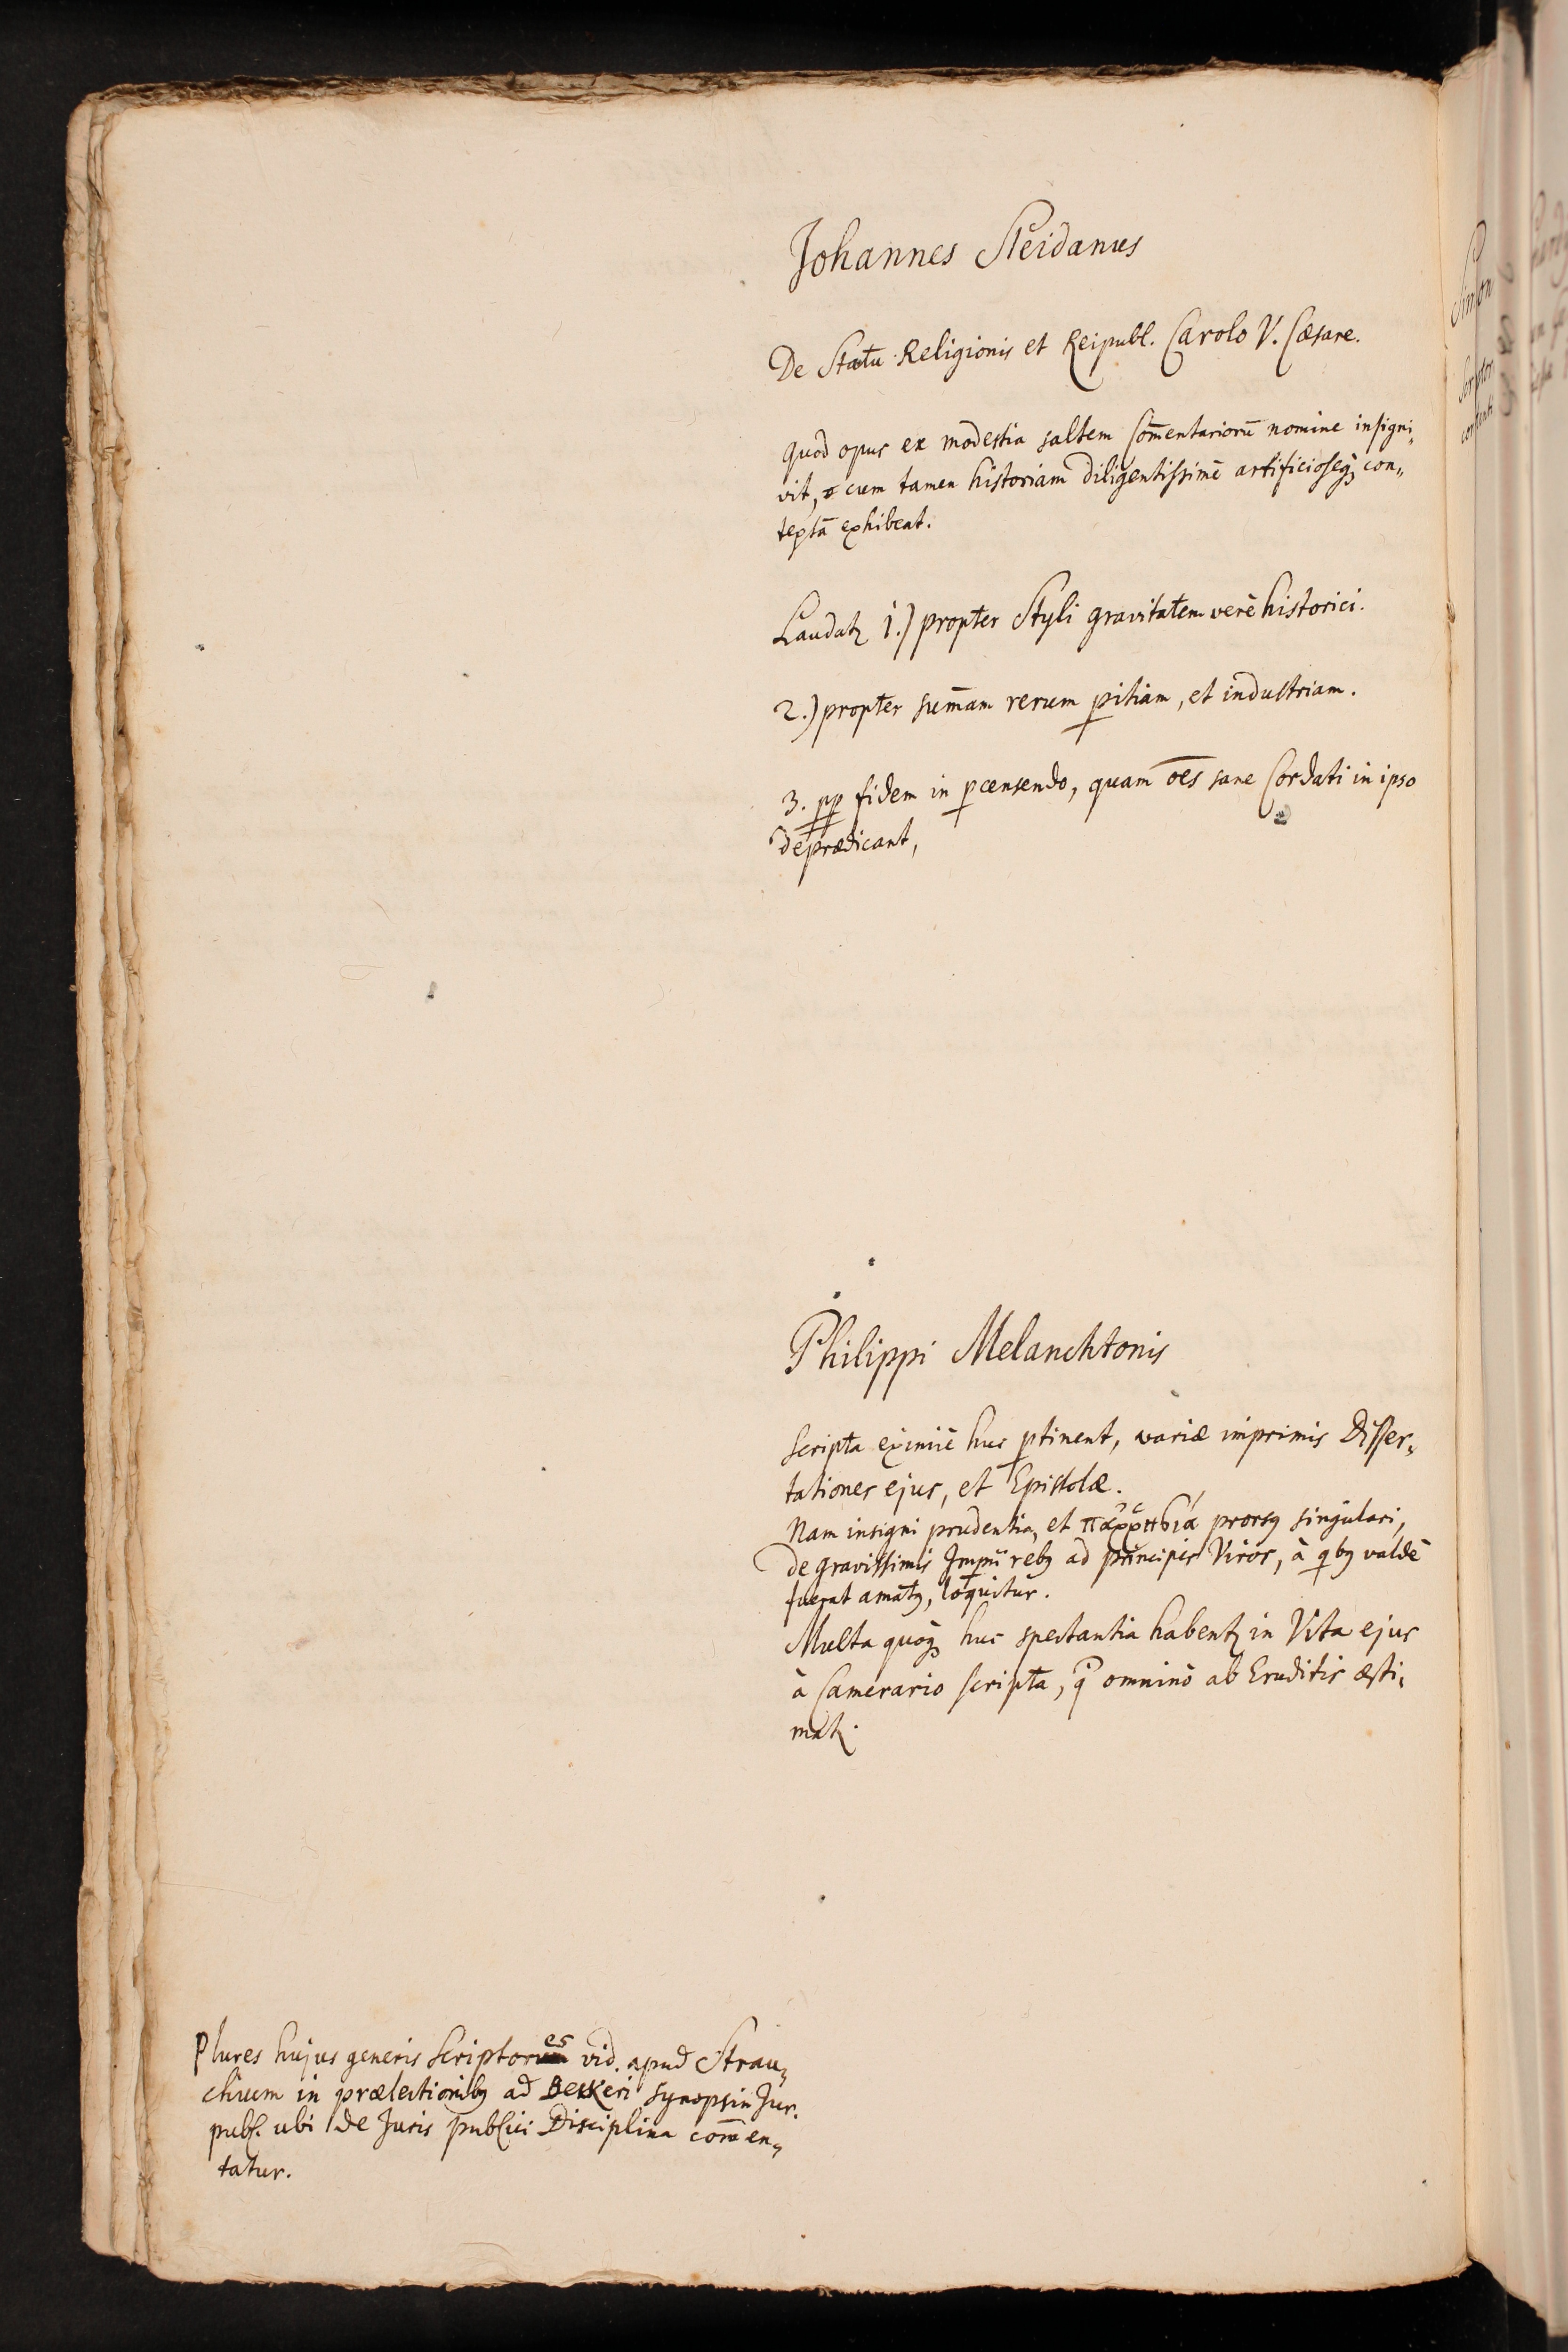 Johannes Sleidanus
De Statu Religionis et Reipubl. Carolo V. Cæsare.
Quod opus ex modestia saltem Com̄entariorū nomine insigni„
vit, cum tamen historiam diligentissimè artificioseq̨ con„
textā exhibeat.
Laudatʒ 1.) propter Styli gravitatem verè historici.
2.) propter sum̄am rerum ꝑitiam, et industriam.
3. ꝓp fidem in ꝑcensendo, quam oēs sane Cordati in ipso
deprædicant,
Philippi Melanchtonis
Scripta eximiè huc ꝑtinent, variæ imprimis Disser„
tationes ejus, et Epistolæ.
Nam insigni prudentia, et παῤῥησιά prorsꝰ singulari,
de gravissimis Imꝑii rebꝰ ad principes Viros, à qbꝰ valdè
fuerat amatꝰ, loquitur.
Multa quoq̨ huc spectantia habentʒ in Vita ejus
à Camerario scripta, q̃ omninò ab Eruditis æsti„
matʒ.
Plures hujus generis Scriptores vid. apud Strau„
chium in prælectionibꝰ ad Bekkeri Synopsin Jur.
publ. ubi de Juris publici Disciplina com̄en„
tatur.